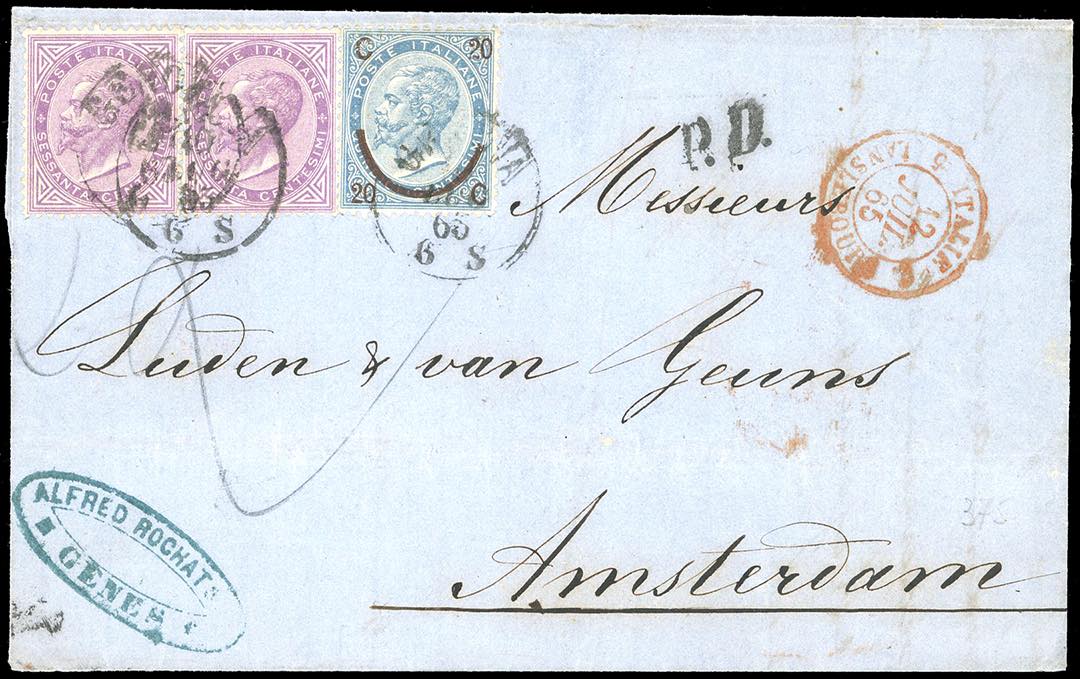 POSTE ITALIANE
SESSANTA C
POSTE ITALIANE
SESSA A CENTESIMI
C 20
POSTE ITALIANE
20 C
6 S
65
6 S
P.D.
ITALIE
5 LANSLEBOURG 5
12
JUIL.
65
Messieurs
Luden & van Geuns
Amsterdam
ALFRED ROCHAT
GENES
375